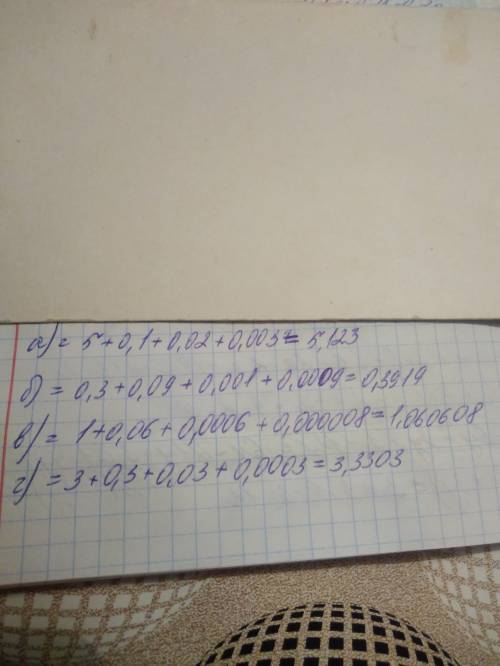 а) = 5 + 0,1 + 0,02 + 0,003 = 5,123
б) = 0,3 + 0,09 + 0,001 + 0,0009 = 0,3919
в) = 1 + 0,06 + 0,0006 + 0,000008 = 1,060608
г) = 3 + 0,3 + 0,03 + 0,0003 = 3,3303